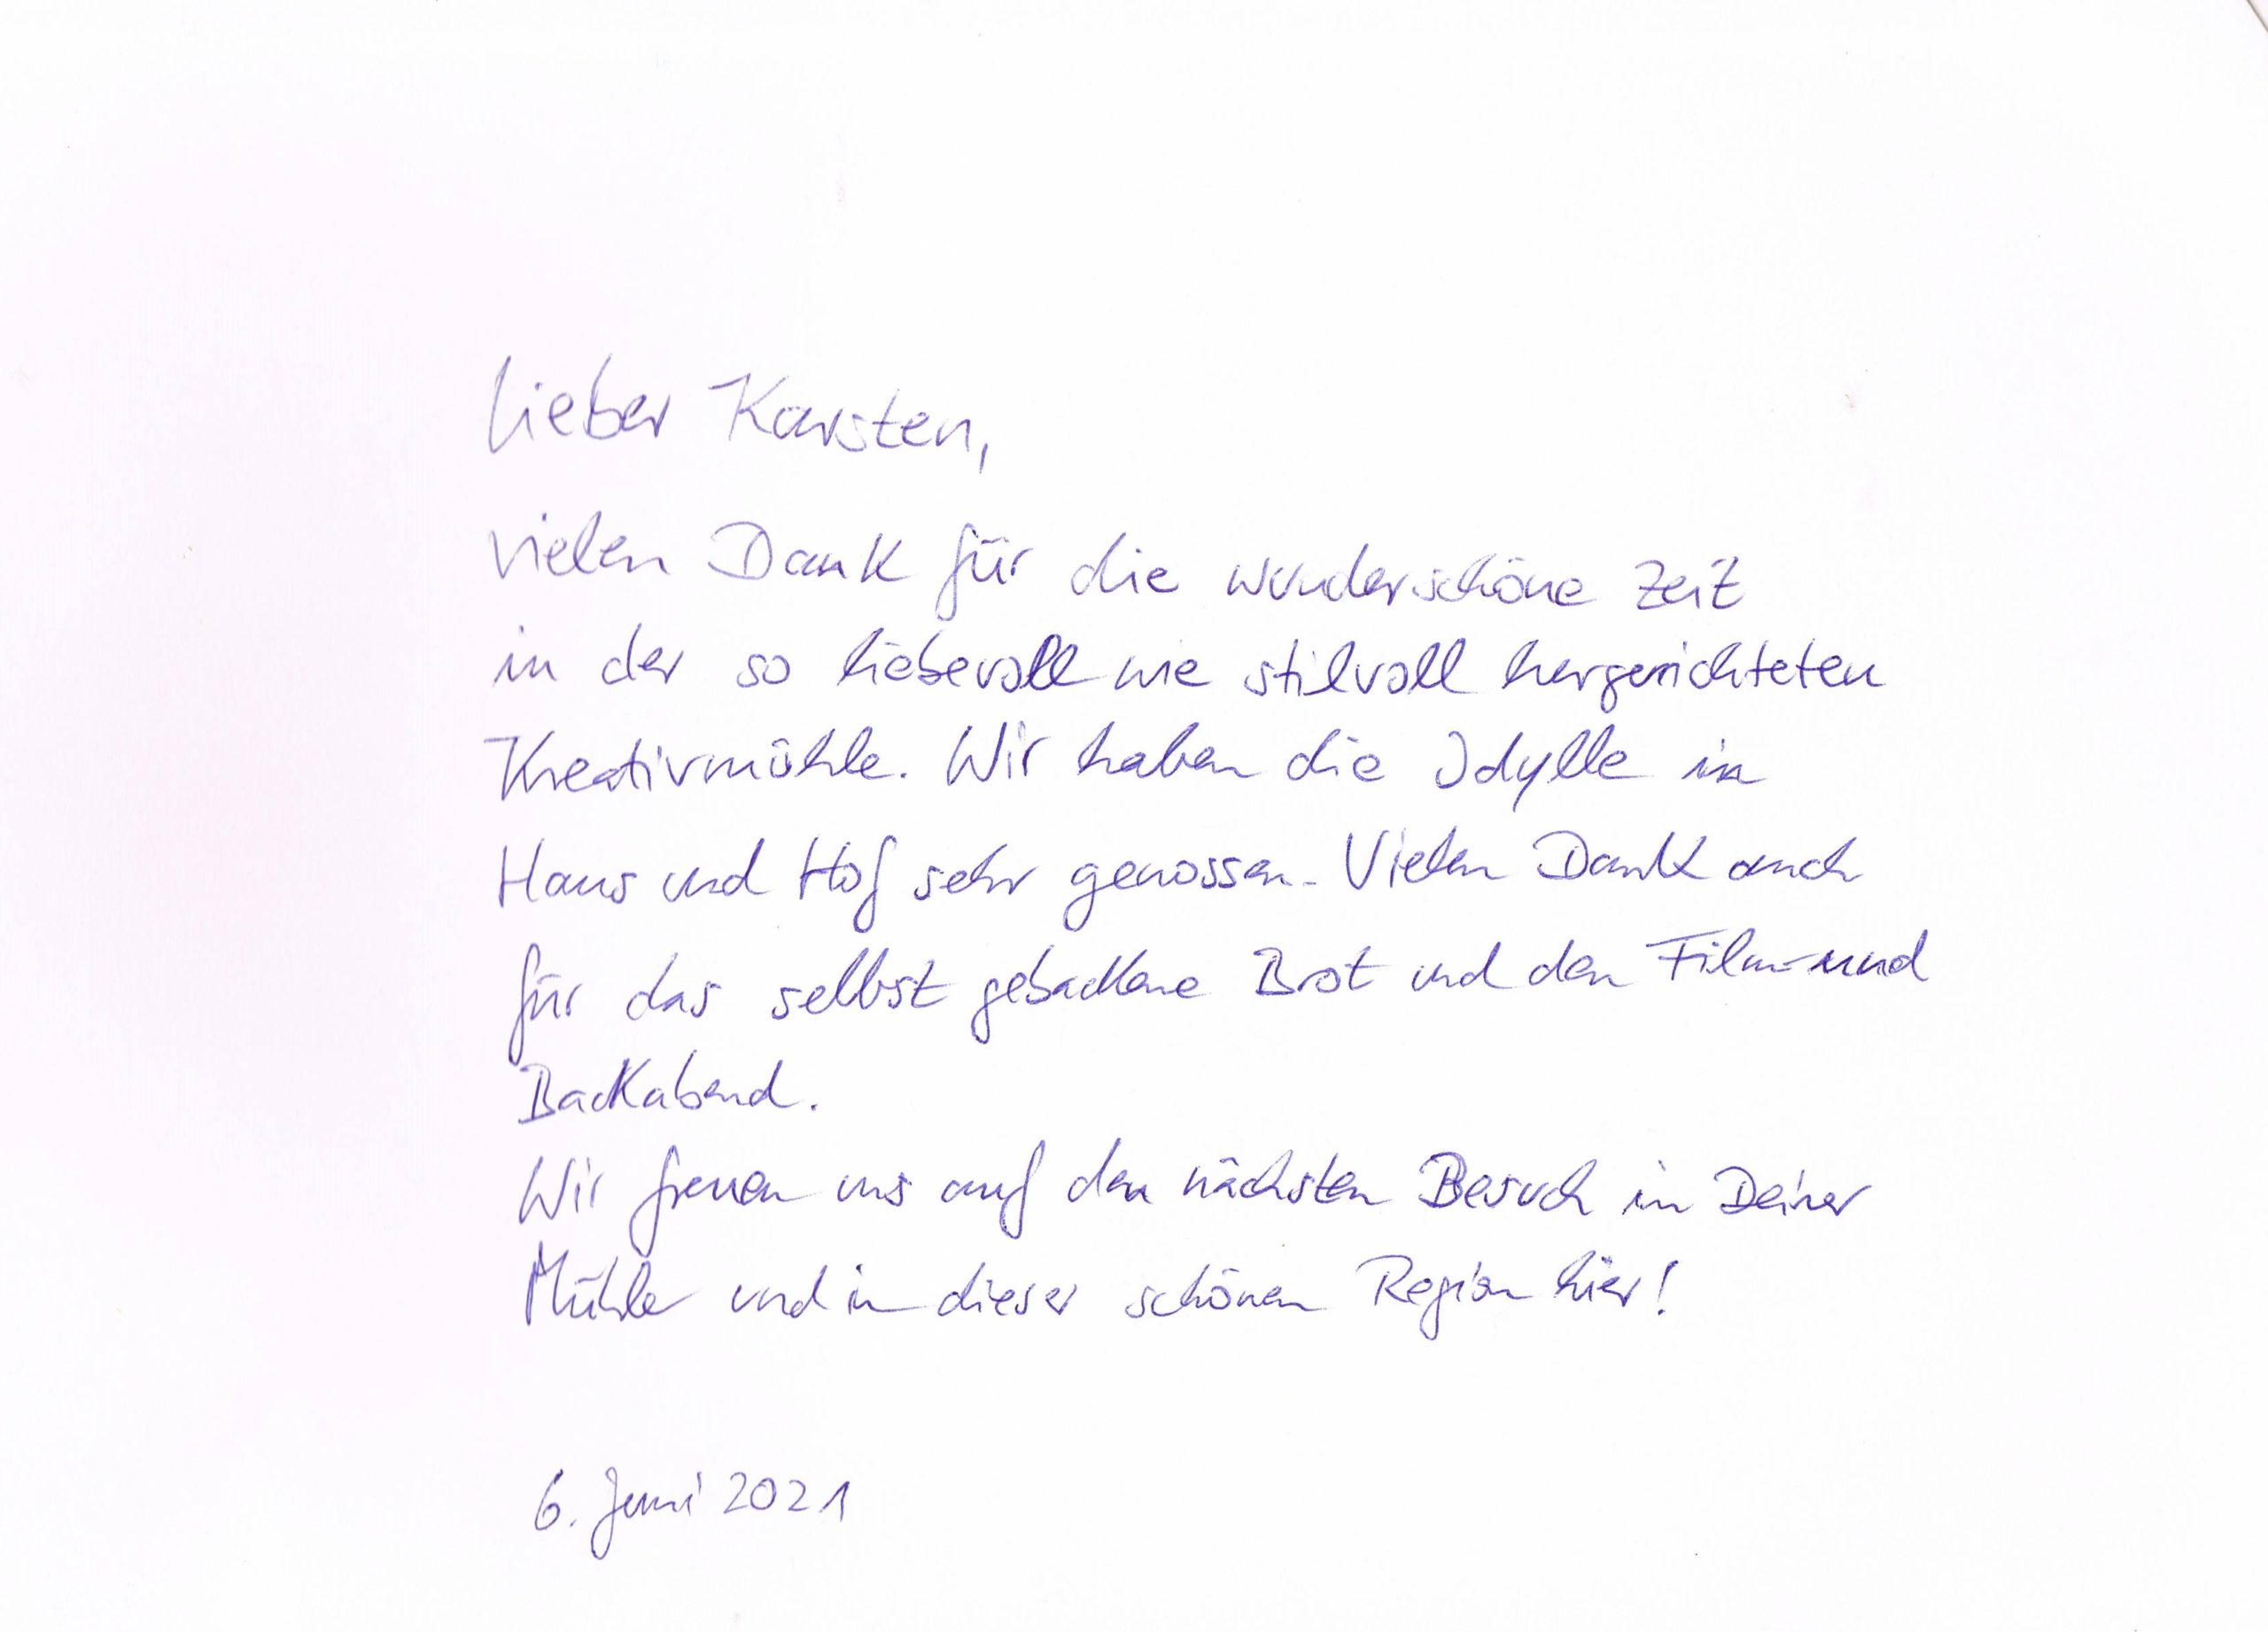 Lieber Karsten,
vielen Dank für die wunderschöne Zeit
in der so liebevoll wie stilvoll hergerichteten
Kreativmühle. Wir haben die Idylle in
Haus und Hof sehr genossen. Vielen Dank auch
für das selbst gebackene Brot und den Film- und
Backabend.
Wir freuen uns auf den nächsten Besuch in Deiner
Mühle und in dieser schönen Region hier!
6. Juni 2021